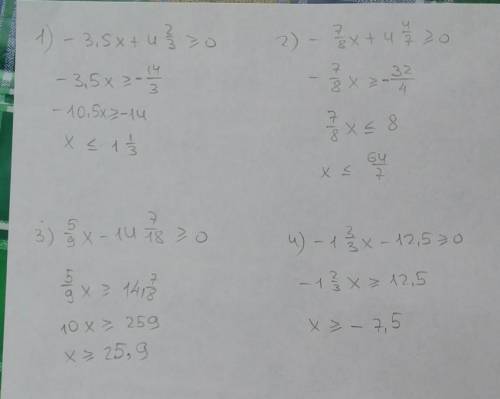 1) - 3,5x + 4 2/3 ≥ 0
- 3,5x ≥ - 14/3
- 10,5x ≥ -14
x ≤ 1 1/3
2) - 7/8 x + 4 4/7 ≥ 0
- 7/8 x ≥ - 32/4
7/8 x ≤ 8
x ≤ 64/7
3) 5/9 x - 14 7/18 ≥ 0
5/9 x ≥ 14 7/18
10x ≥ 259
x ≥ 25,9
4) - 1 2/3 x - 12,5 ≥ 0
- 1 2/3 x ≥ 12,5
x ≥ - 7,5